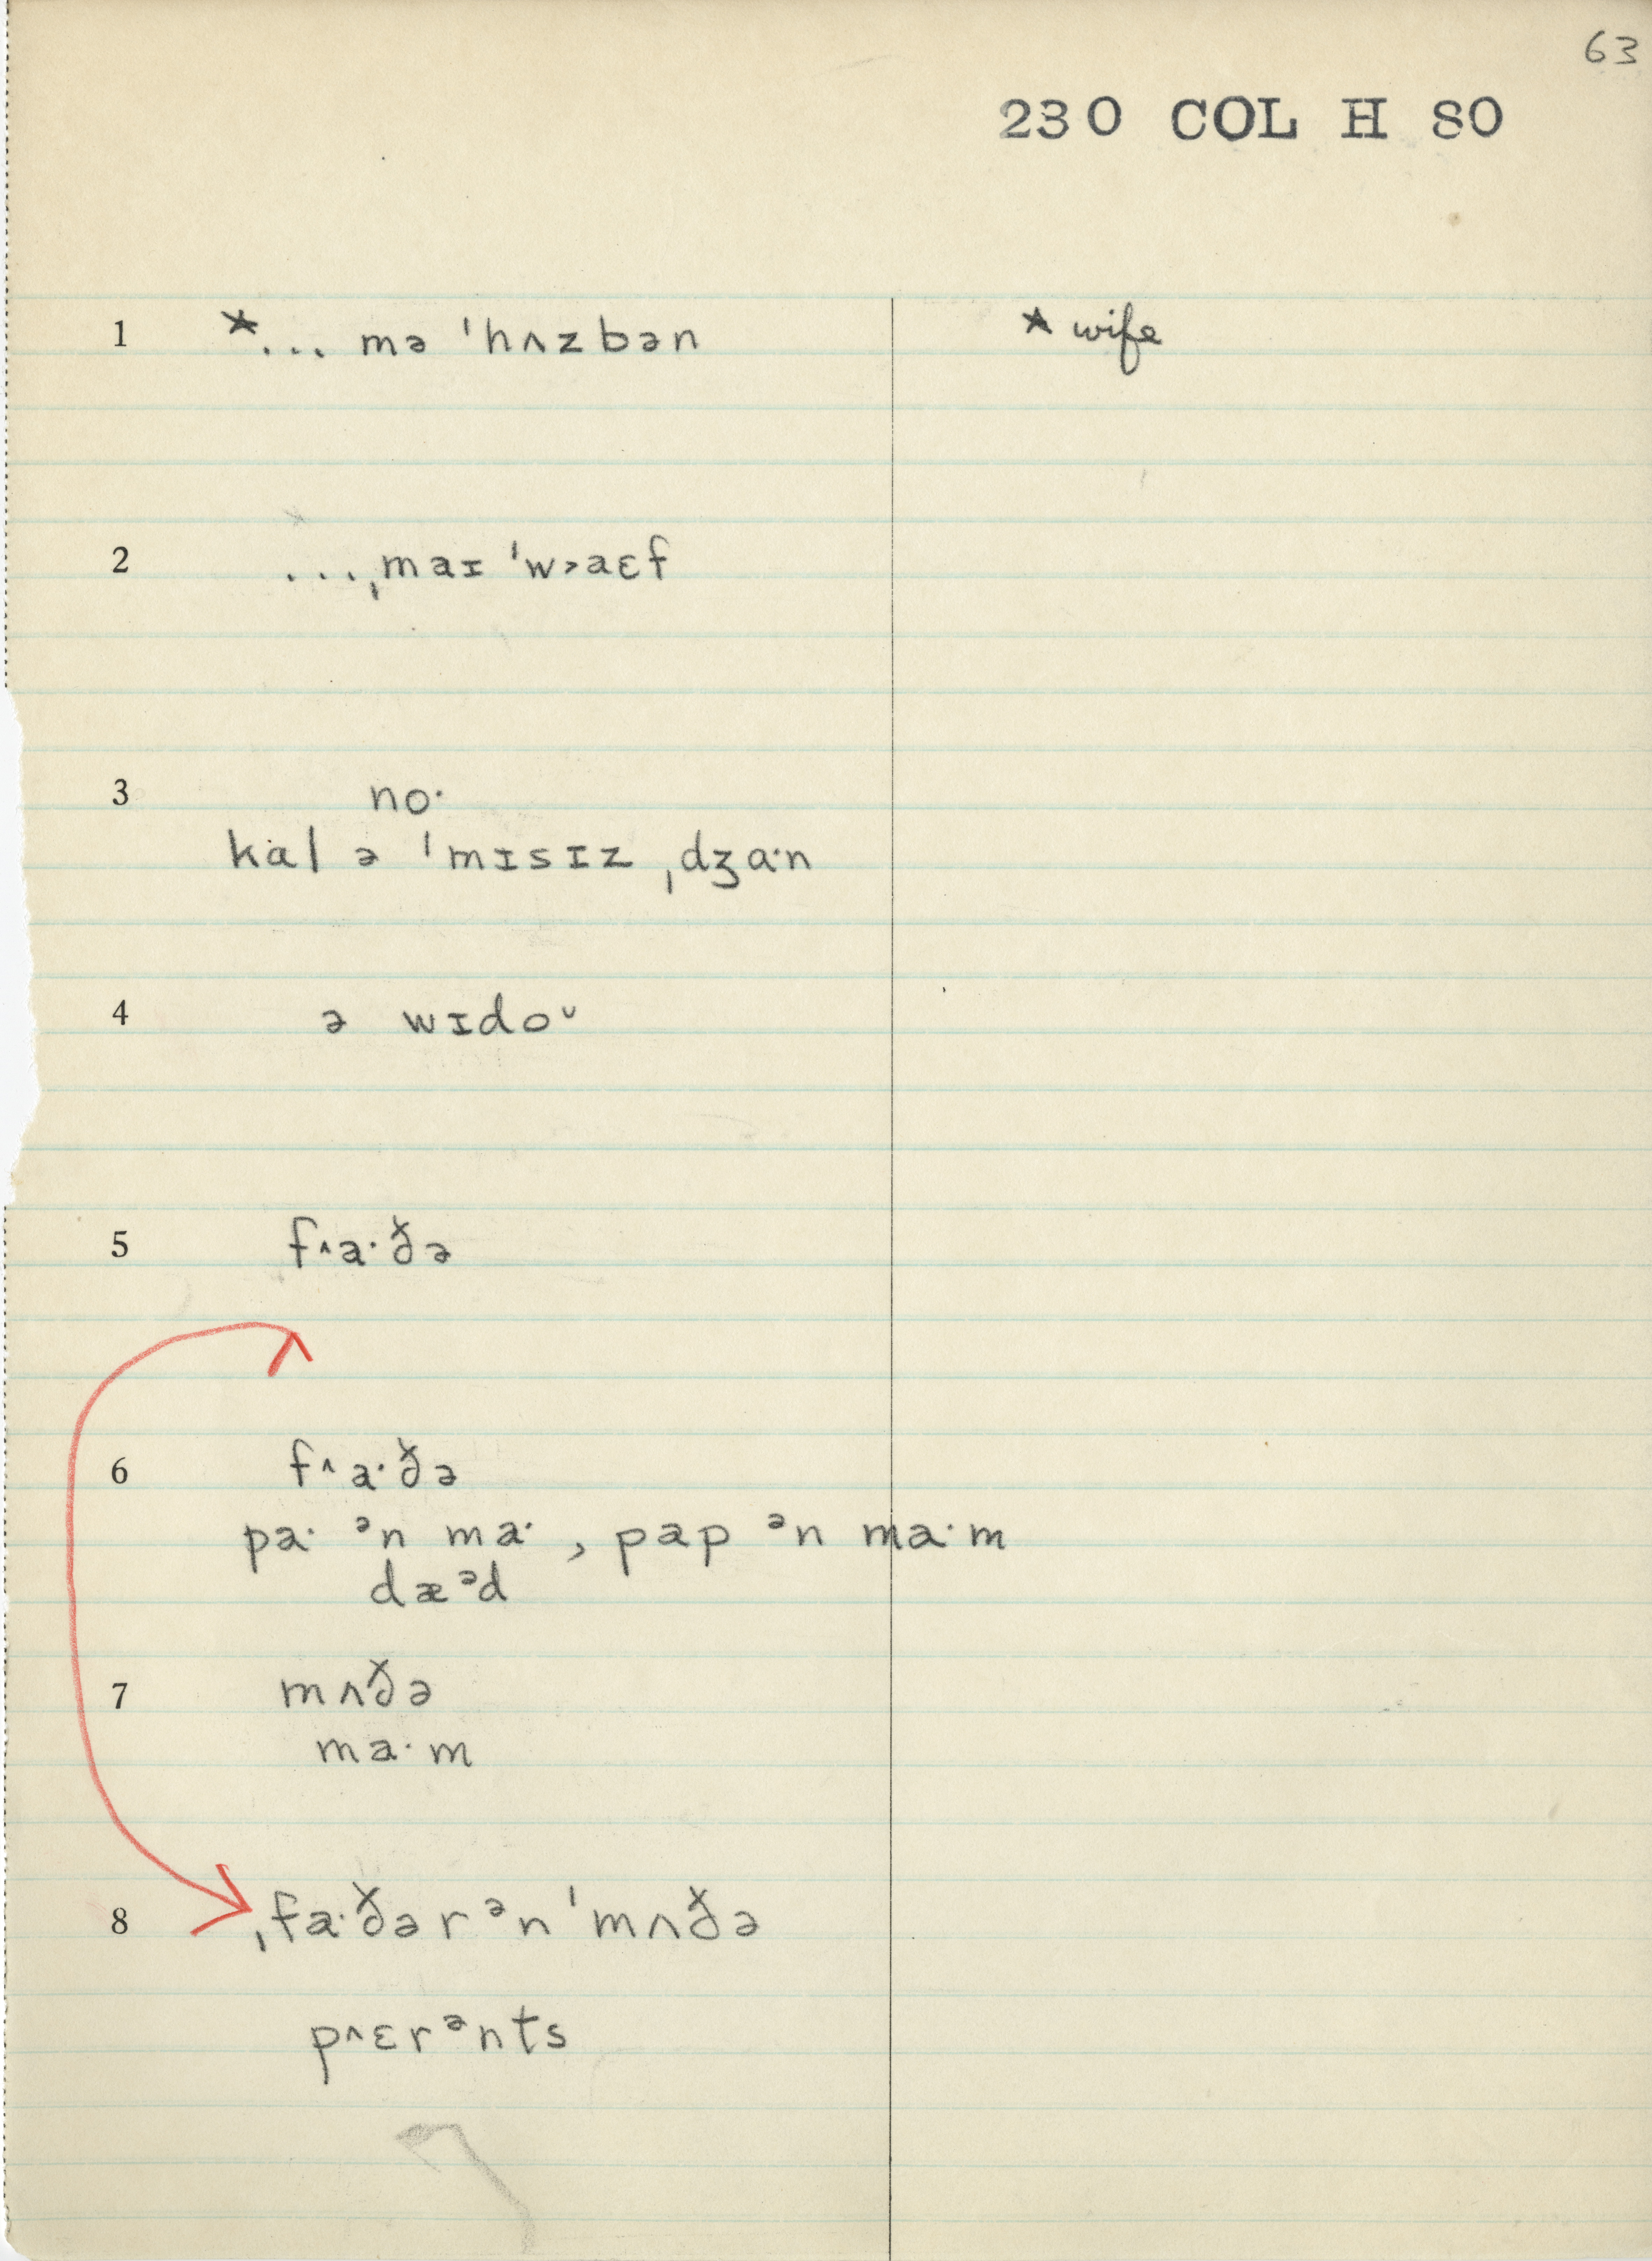 63
230 COL H SO
1 *... mə ˈhʌzbən * wife
2 ...ˌmaɪ ˈw˃aɛf
3 no·
kal ə ˈmɪsɪz ˌdʒɑ·n
4 ə wɪdoᵕ
5 f˄a·ð̌ə
6 f˄a·ð̌ə
pa· ᵊn ma· , pap ᵊn ma·m
dæᵊd
7 mʌð̌ə
ma·m
8 ˌfa·ð̌ər ᵊn ˈmʌð̌ə
p˄ɛrᵊnts